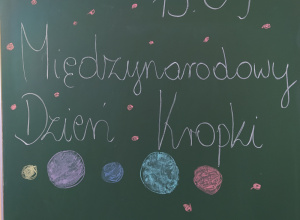 Międzynarodowy
Dzień Kropki